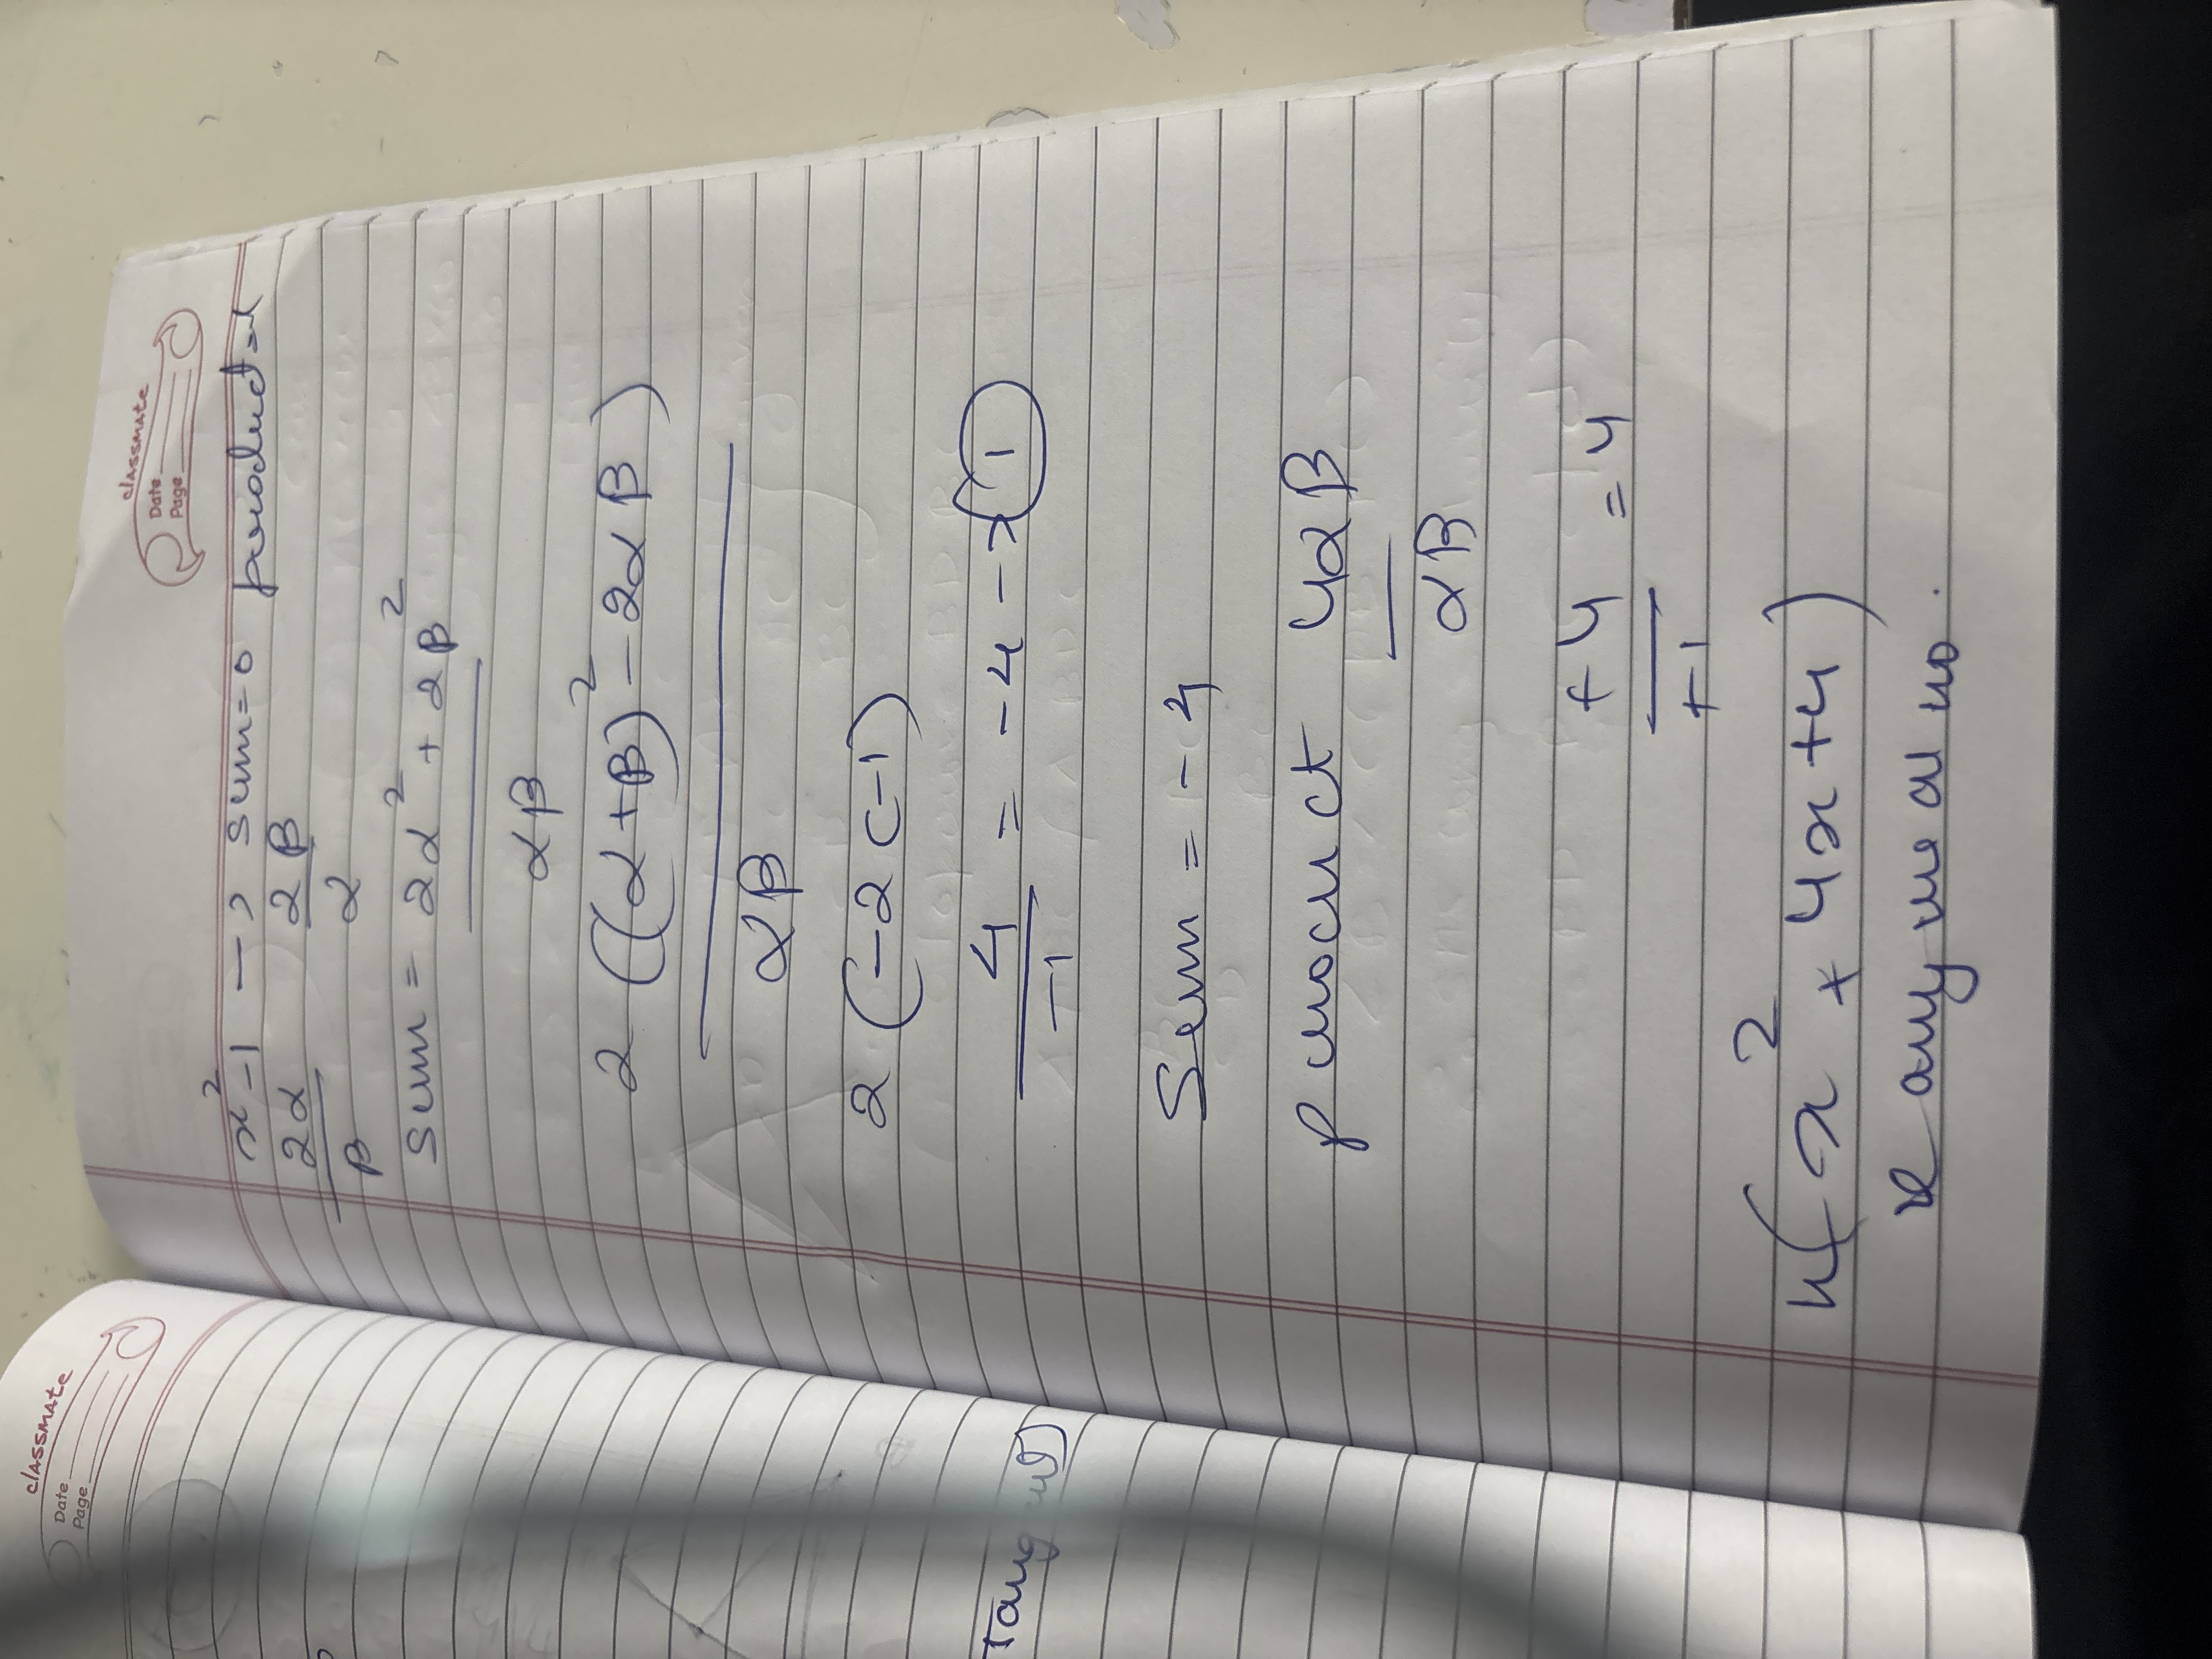 classmate
Date
Page
x² - 1 -> sum = 0 product = -1
2α/β 2β/α
Sum = 2α² + 2β²
αβ
2 ((α+β)² - 2αβ)
αβ
2 (-2 (-1)
4/-1 = -4 -> 1
Sum = -4
product 4αβ
αβ
+4/+1 = 4
k(x² + 4x + 4)
k any real no.
classmate
Date
Page